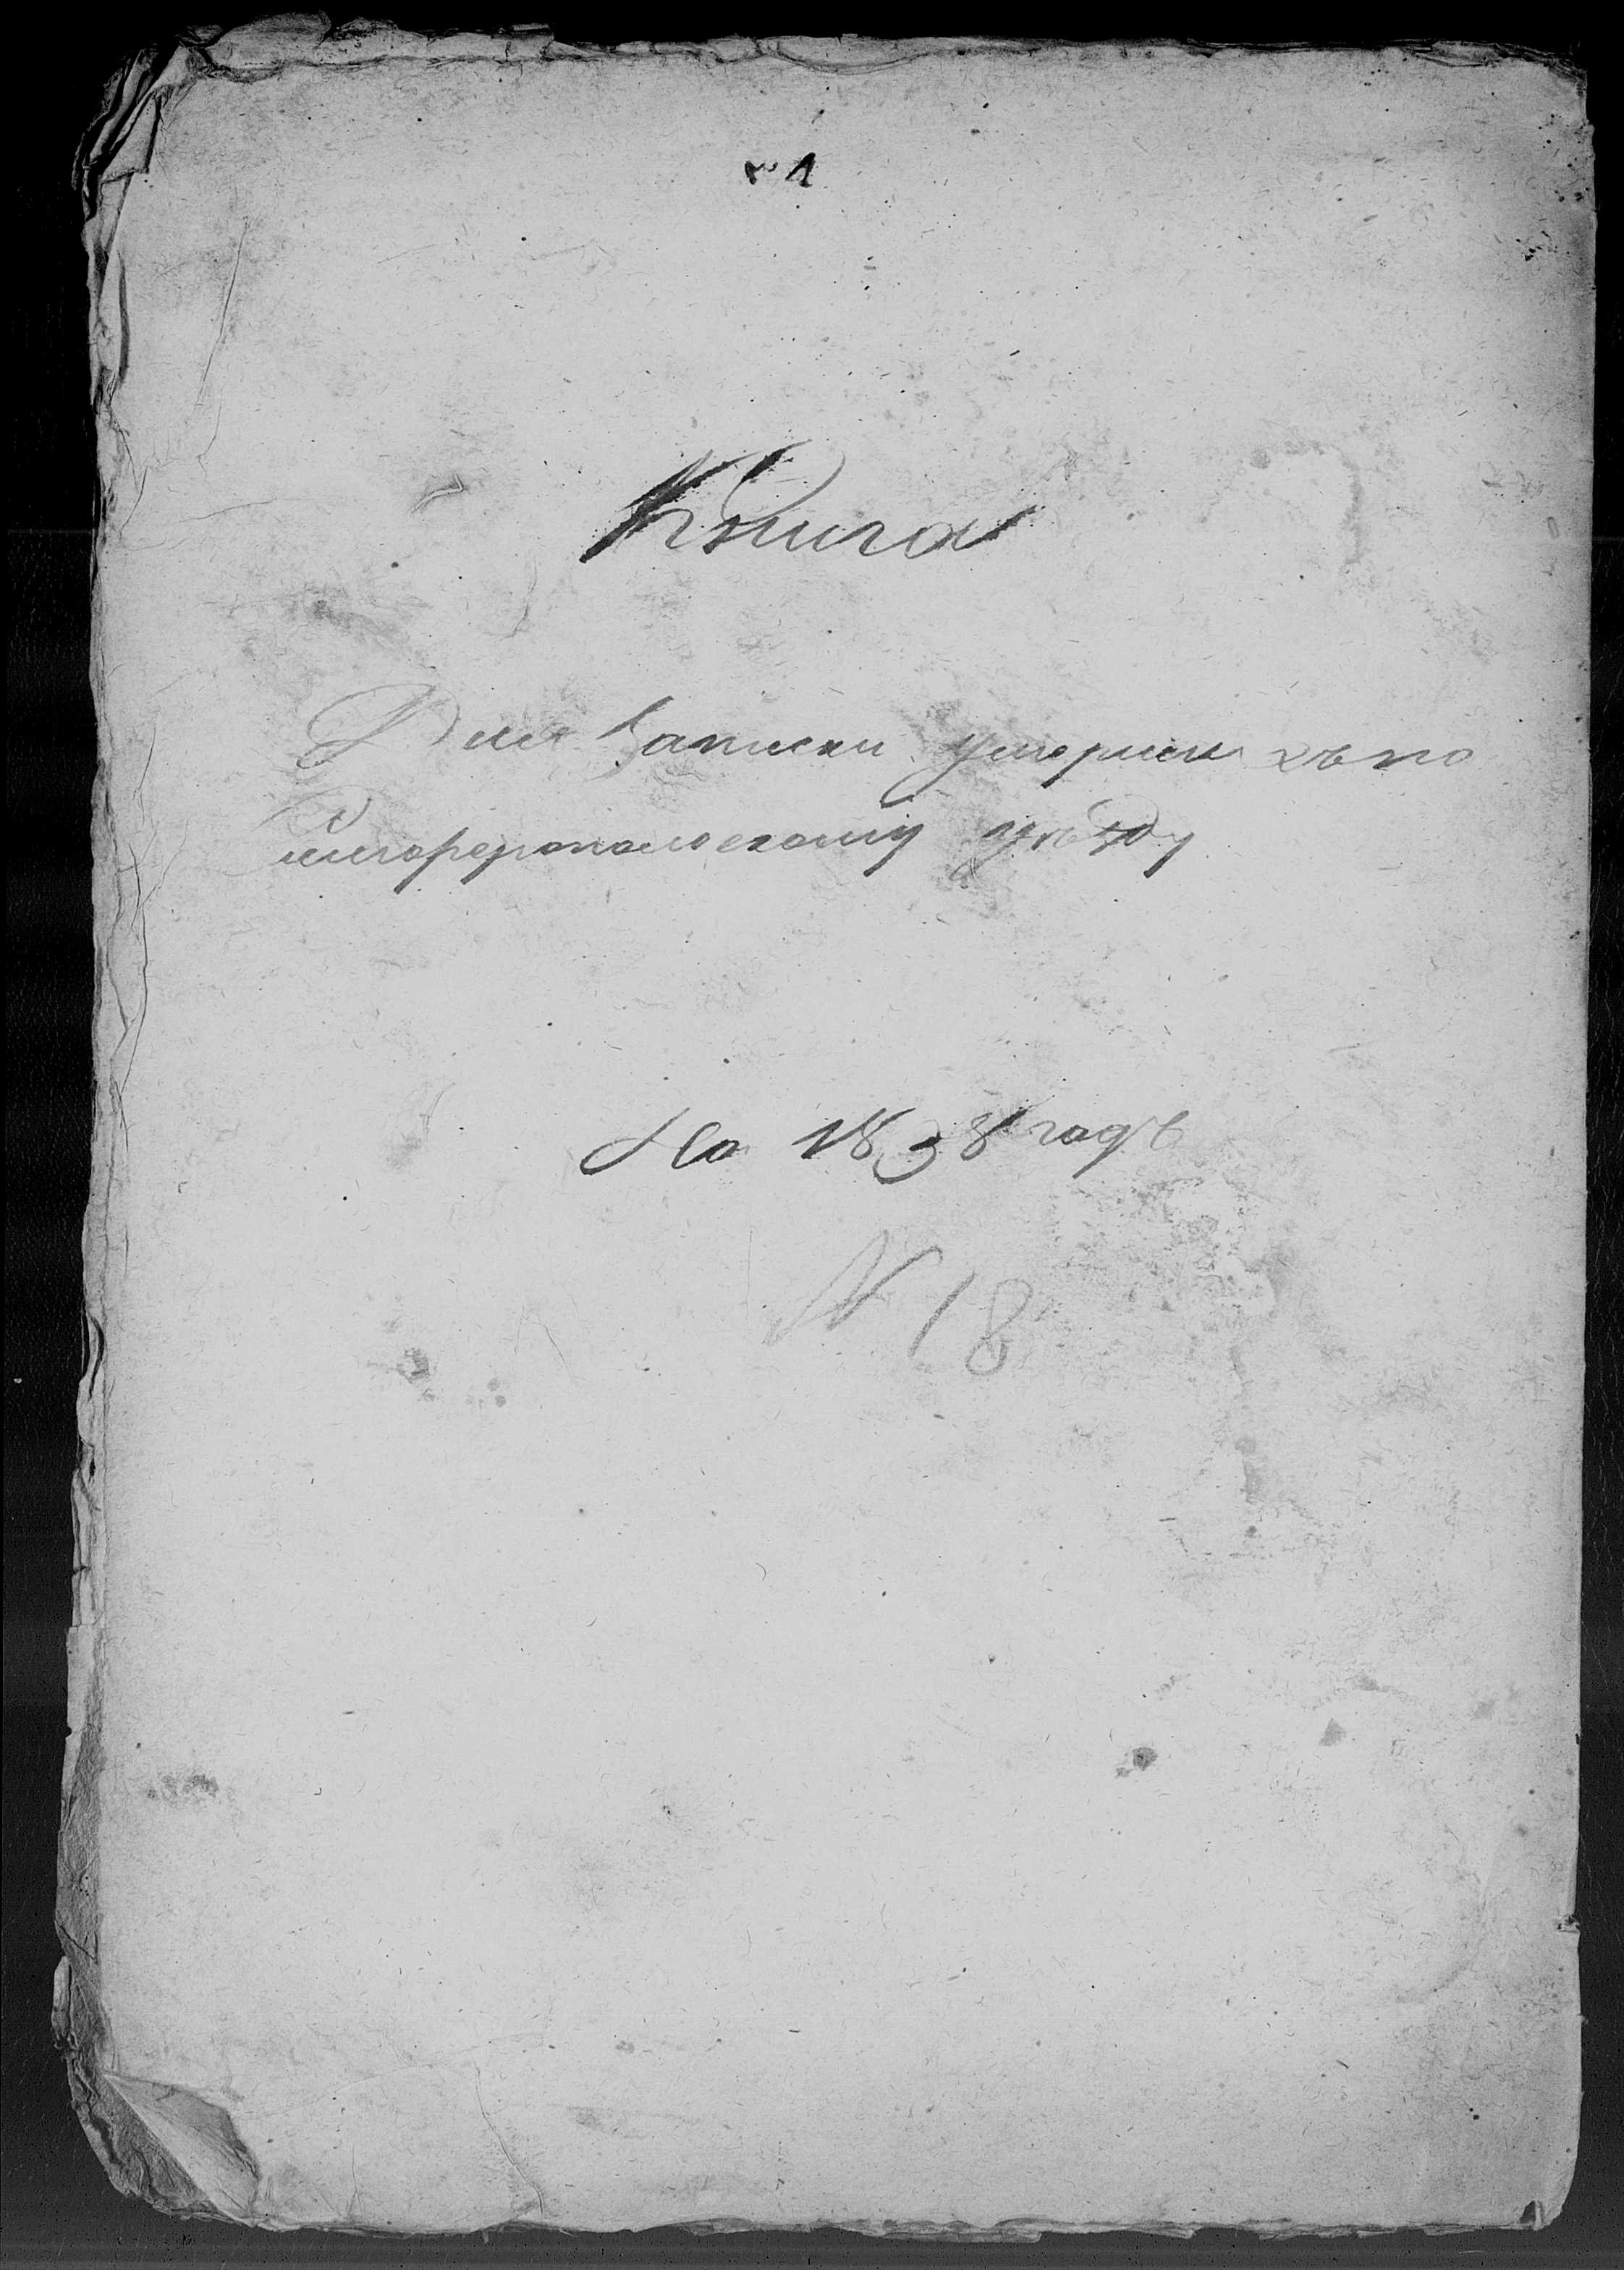 № 1
Книга
Для Записки умершихъ по
Симферопольскому уѣзду
На 1838 годъ
N 18